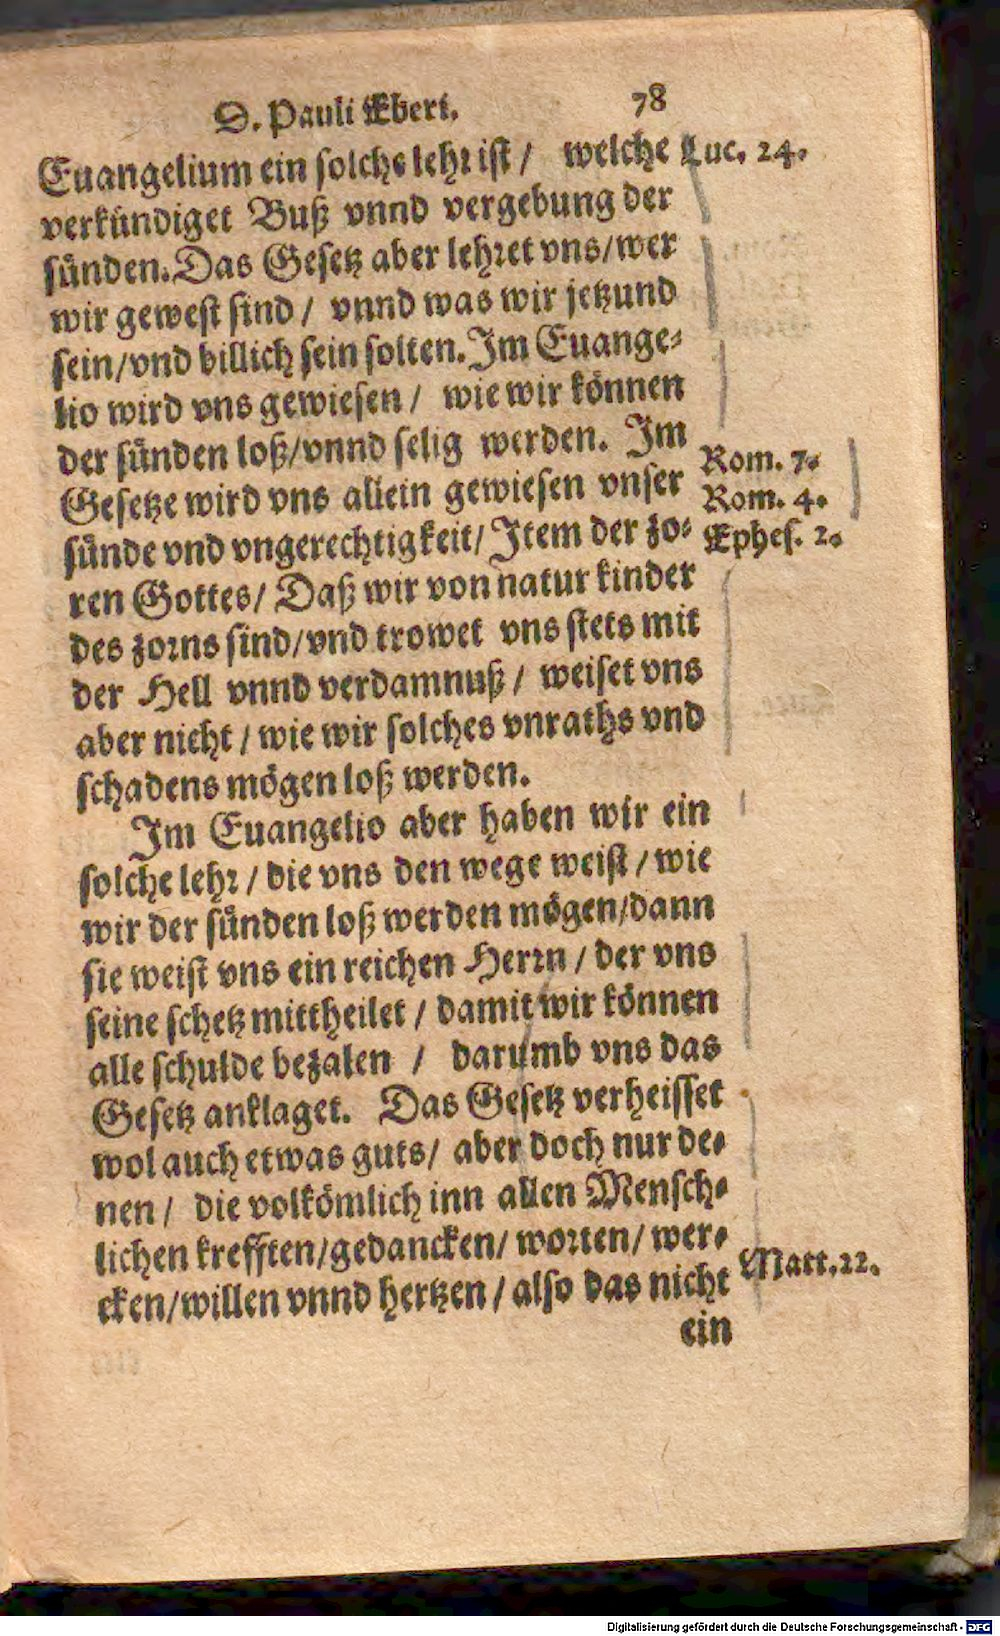 D. Pauli Ebert. 78
Euangelium ein solche lehr ist / welche Luc. 24.
verkündiget Buß vnnd vergebung der
sünden. Das Gesetz aber lehret vns/wer
wir gewest sind / vnnd was wir jetzund
sein/vnd billich sein solten. Im Euange-
lio wird vns gewiesen / wie wir können
der sünden loß/vnnd selig werden. Im
Rom. 7.
Gesetze wird vns allein gewiesen vnser
Rom. 4.
sünde vnd vngerechtigkeit/ Item der zo-
Ephes. 2.
ren Gottes/ Daß wir von natur kinder
des zorns sind/vnd trowet vns stets mit
der Hell vnnd verdamnuß / weiset vns
aber nicht / wie wir solches vnraths vnd
schadens mögen loß werden.
Im Euangelio aber haben wir ein
solche lehr / die vns den wege weist / wie
wir der sünden loß werden mögen/dann
sie weist vns ein reichen Herrn / der vns
seine schetz mittheilet / damit wir können
alle schulde bezalen / darumb vns das
Gesetz anklaget. Das Gesetz verheisset
wol auch etwas guts/ aber doch nur de-
nen / die volkömlich inn allen Mensch-
lichen krefften/gedancken/ worten/ wer-
Matt. 22.
cken/willen vnnd hertzen / also das nicht
ein
Digitalisierung gefördert durch die Deutsche Forschungsgemeinschaft - DFG